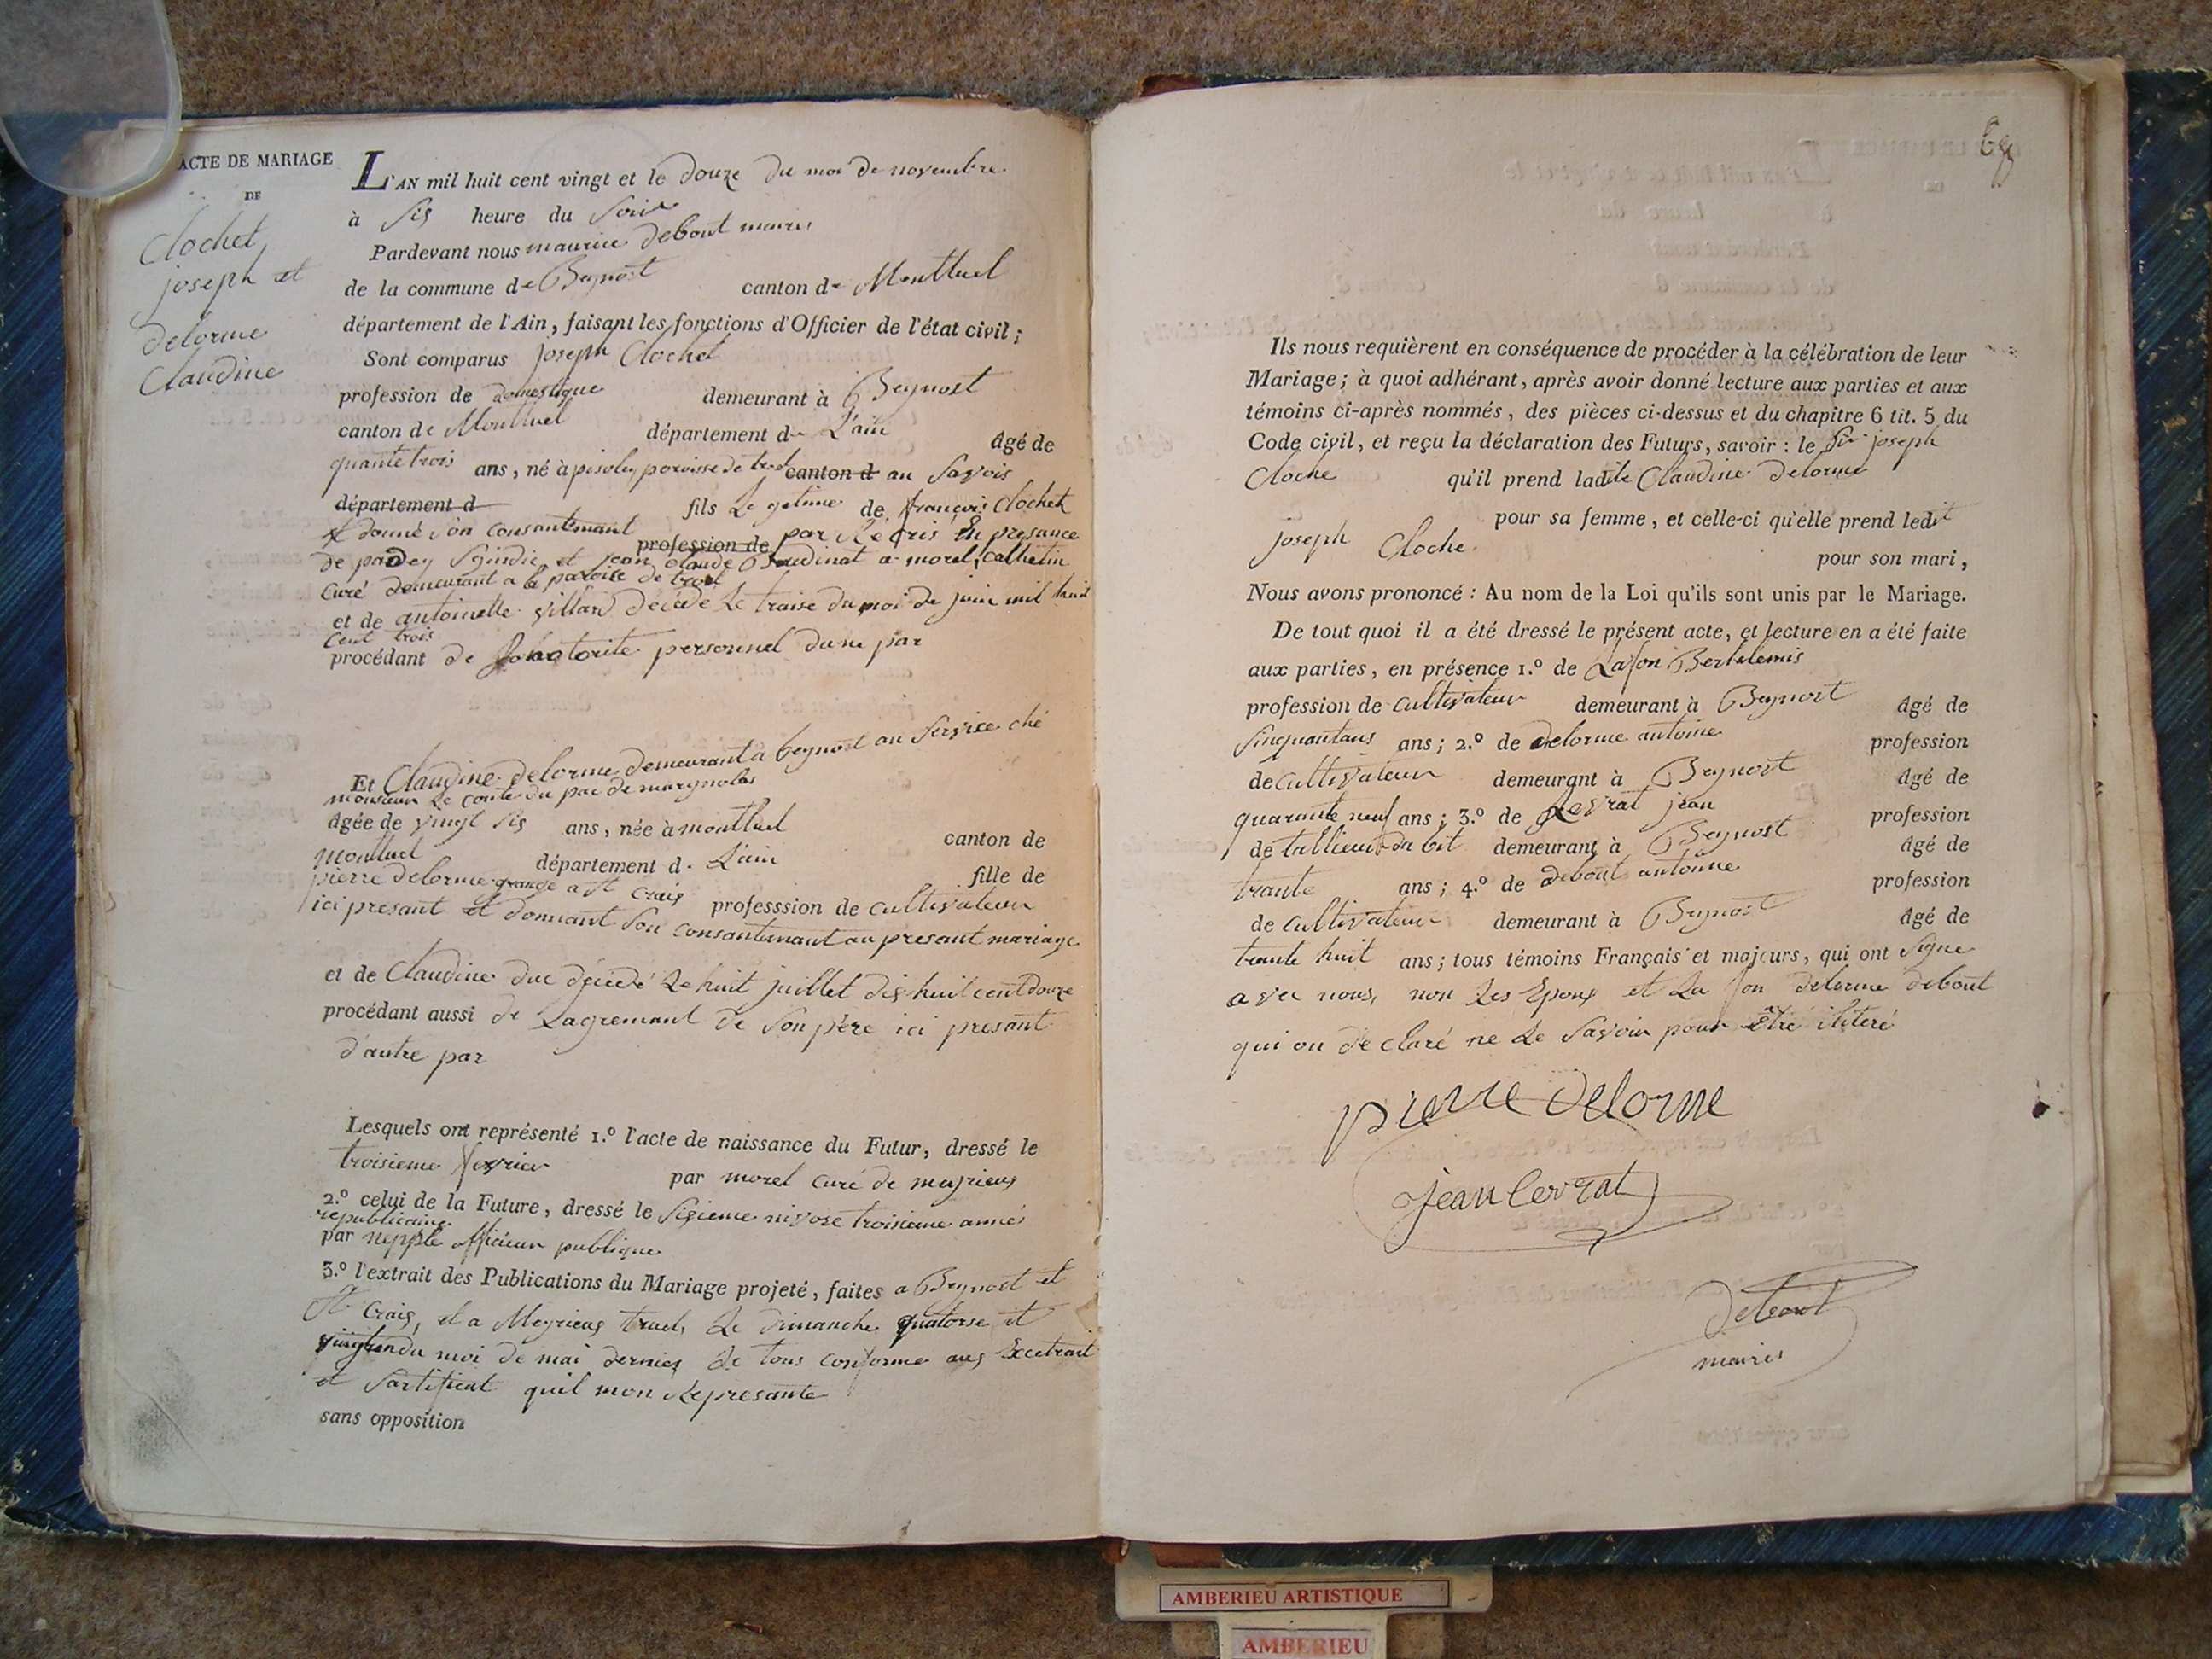 ACTE DE MARIAGE
DE
Clochet
joseph et
delorme
Claudine
L'AN mil huit cent vingt et le douze du moi de novembre
à sis heure du soir
Pardevant nous maurice debout maire
de la commune de Beynost canton de Montluel
département de l'Ain, faisant les fonctions d'Officier de l'état civil;
Sont comparus joseph Clochet
profession de domestique demeurant à Beynost
canton de Montluel département de L'ain âgé de
quante trois ans, né à pisoley paroisse de canton d au Savois
département d fils Le getime de françois Clochet
et donné son consantemant profession de par Recris En presance
de Sgindic et jean claude a morel,
Curé demeurant a la paroise de
et de antoinette villard décédé Le traise du moi de juin mil huit
cent trois
procédant de personnel dune par
Et Claudine delorme demeurant a beynost au Service ché
monsieur Le conte du de
âgée de vingt sis ans, née à montluel canton de
Montluel département d. L'ain fille de
pierre delorme a St Crais professsion de cultivateur
ici presant et donnant son consantemant au presant mariage
et de Claudine duc décédé Le huit juillet dis huit cent douze
procédant aussi de Lagremant de son père ici presant
d'autre par
Lesquels ont représenté 1.º l'acte de naissance du Futur, dressé le
troisieme fevrier par morel curé de
2.º celui de la Future, dressé le sisieme nivose troisieme année
republicaine
par nepple officieur publique
3.º l'extrait des Publications du Mariage projeté, faites a Beynost et
St Crais, et a Meyrieux Le dimanche quatorse et
du moi de mai dernier de tous conforme aus
et Sartificat quil mon Represante
sans opposition
Ils nous requièrent en conséquence de procéder à la célébration de leur
Mariage; à quoi adhérant, après avoir donné lecture aux parties et aux
témoins ci-après nommés, des pièces ci-dessus et du chapitre 6 tit. 5 du
Code civil, et reçu la déclaration des Futurs, savoir: le Sr joseph
Cloche qu'il prend ladite Claudine delorme
pour sa femme, et celle-ci qu'elle prend ledit
joseph Cloche pour son mari,
Nous avons prononcé: Au nom de la Loi qu'ils sont unis par le Mariage.
De tout quoi il a été dressé le présent acte, et lecture en a été faite
aux parties, en présence 1.º de Lafon Bertelemis
profession de cultivateur demeurant à Beynost âgé de
sinquantaus ans; 2.º de delorme antoine profession
de cultivateur demeurant à Beynost âgé de
quarante neuf ans; 3.º de Levrat jean profession
de tallieur da bit demeurant à Beynost âgé de
trante ans; 4.º de debout antoine profession
de cultivateur demeurant à Beynost âgé de
trante huit ans; tous témoins Français et majeurs, qui ont signe
avec nous, non Les Epoux et La fon delorme debout
qui on déclaré ne Le savoir pour être iliteré
pierre delorme
jean levrat
debout
maire
AMBERIEU ARTISTIQUE
AMBERIEU